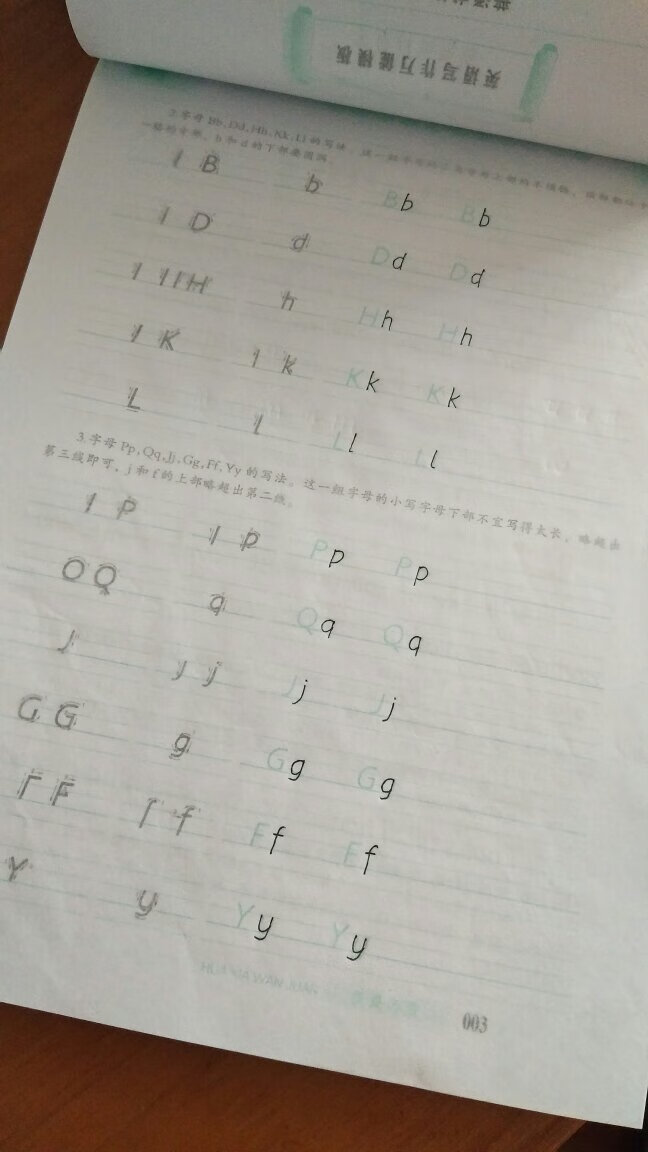 英语写作万能模板
2.字母Bb,Dd,Hh,Kk,Ll的写法。这一组字母的
b和d的下部要圆润。
1 B b Bb Bb
1 D d Dd Dd
1 11H h Hh Hh
1 K 1 k Kk Kk
L l Ll Ll
3.字母Pp,Qq,Jj,Gg,Ff,Yy的写法。这一组字母的小写字母下部不宜写得太长,略超出
第三线即可,j和f的上部略超出第二线。
1 P 1 p Pp Pp
O Q q Qq Qq
J j j Jj Jj
G G g Gg Gg
F F f f Ff Ff
Y y Yy Yy
HUA XIA WAN JUAN 华夏万卷
003